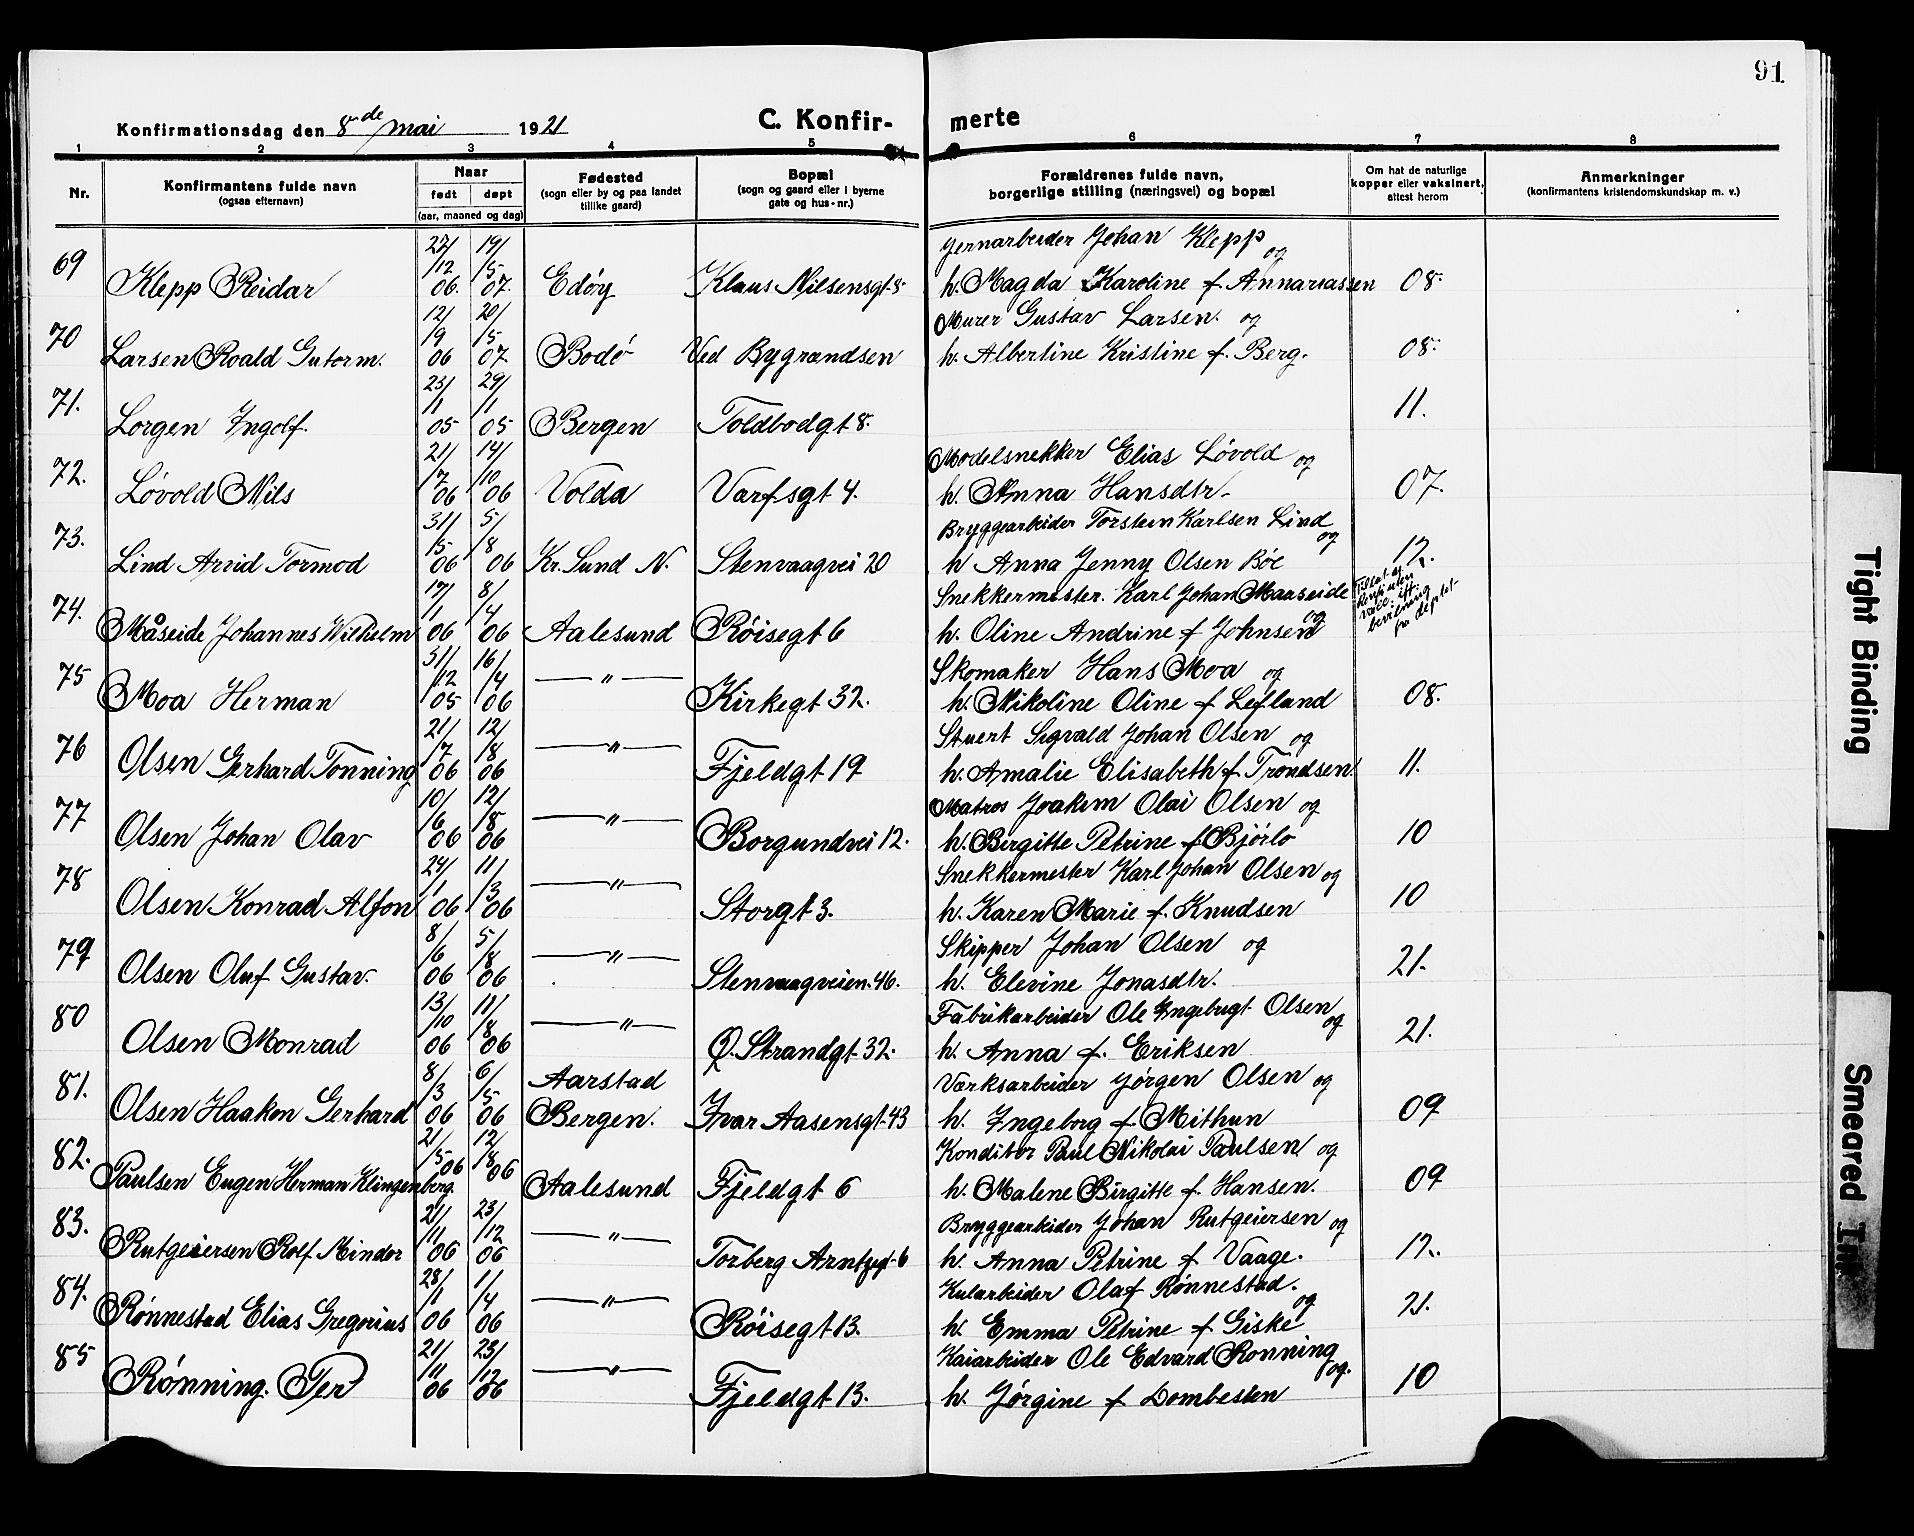 91
Konfirmationsdag den 8de mai 1921 C. Konfir- merte
1 2 3 4 5 6 7 8
Nr. Konfirmantens fulde navn (ogsaa efternavn) Naar født døpt (aar, maaned og dag) Fødested (sogn eller by og paa landet tillike gaard) Bopæl (sogn og gaard eller i byerne gate og hus-nr.) Forældrenes fulde navn, borgerlige stilling (næringsvei) og bopæl Om hat de naturlige kopper eller vaksinert, attest herom Anmerkninger (konfirmantens kristendomskundskap m. v.)
69 Klepp Reidar 27/12 06. 19/5 07. Edøy Klaus Nilsensgt. 8. Jernarbeider Johan Klepp og
h. Magda Karoline f. Annaniassen 08.
70 Larsen Roald Gutorm. 12/9 06 20/5 07 Bodø Ved Bygrændsen Murer Gustav Larsen. og
h. Albertine Kristine f. Berg. 08.
71. Lorgen Ingolf. 23/1 05 29/1 05 Bergen Toldbodgt 8. 11.
72. Løvold Nils 21/7 06 14/10 06 Volda Varfsgt 4. Modelsnekker Elias Løvold og
h. Anna Hansdtr. 07.
73. Lind Arvid Tormod 31/5 06 5/8 06 Kr. Sund N. Stenvaagvei 20 Bryggearbeider Torstein Karlsen Lind og
h Anna Jenny Olsen Böe 12.
74. Måseide Johannes Wilhelm 17/1 06 8/4 06 Aalesund Röisegt 6 Snekkermester. Karl Johan Maaseide og
h. Oline Andrine f Johnsen
75 Moa Herman 31/12 05 16/4 06 — " — Kirkegt 32. Skomaker Hans Moa og
h. Nikoline Oline f Lefland 08.
76 Olsen Gerhard Tonning 21/7 06 12/8 06 — " — Fjeldgt 19 Stuert Sigvald Johan Olsen og
h. Amalie Elisabeth f. Trondsen 11.
77 Olsen Johan Olav 10/6 06 12/8 06 — " — Borgundvei 12. Matros Joakim Olai Olsen og
h. Birgitte Petrine f Bjørlo 10
78 Olsen Konrad Alfon 24/1 06 11/3 06 — " — Storgt 3. Snekkermester Karl Johan Olsen og
h. Karen Marie f. Knudsen 10
79 Olsen Oluf Gustav. 8/6 06 5/8 06 — " — Stenvaagveien. 46. Skipper Johan Olsen og
h. Elevine Jonasdtr. 21.
80 Olsen Monrad 13/10 06 11/8 06 — " — Ø. Strandgt 32. Fabrikarbeider Ole Ingebrigt Olsen og
h. Anna f. Eriksen 21.
81. Olsen Haakon Gerhard 8/3 06 6/5 06 Aarstad Bergen. Ivar Aasensgt. 43 Værksarbeider Jørgen Olsen og
h. Ingeborg f Mithun 09
82. Paulsen Eugen Herman Klingenberg. 21/5 06 12/8 06 Aalesund Fjeldgt 6 Konditor Paul Nikolai Paulsen og
h. Malene Birgitte f. Hansen. 09
83. Rutgeiersen Rolf Mindor 21/11 06 23/12 06 — " — Torberg Arntzgt. 6 Bryggearbeider Johan Rutgeiersen og
h. Anna Petrine f Vaage. 12.
84. Rønnestad Elias Gregorius 28/1 06 1/4 06 — " — Röisegt 13. Kularbeider Olaf Rønnestad. og
h. Emma Petrine f Giske 21.
85 Rønning. Per 21/11 06 23/12 06 — " — Fjeldgt 13. Kaiarbeider Ole Edvard Ronning og.
h. Jørgine f Dombesten 10
Tight Binding
Smeared Ink